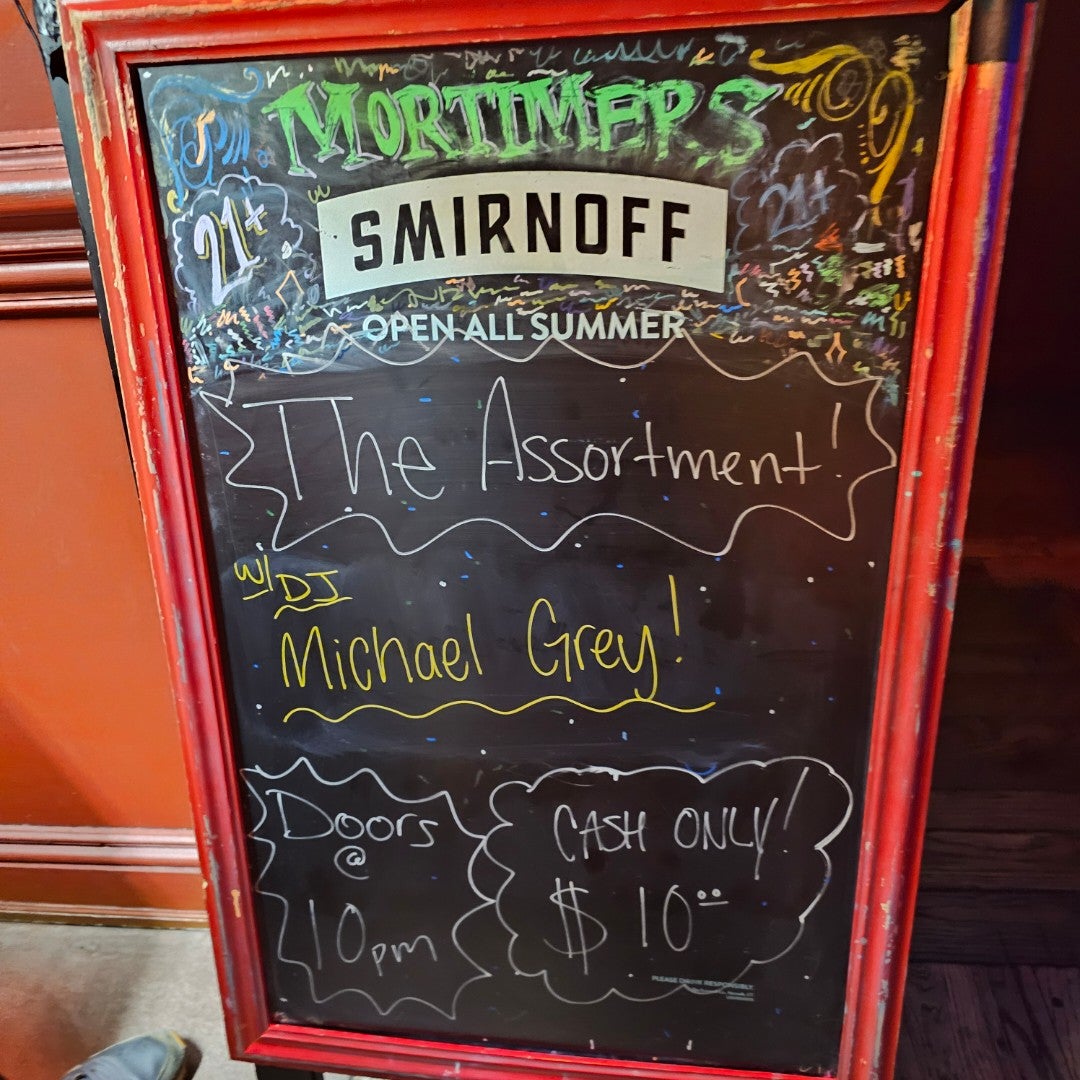 MORTIMERS
21+
SMIRNOFF
21+
OPEN ALL SUMMER
The Assortment!
w/DJ
Michael Grey!
Doors
@
10pm
CASH ONLY!
$10.00
PLEASE DRINK RESPONSIBLY